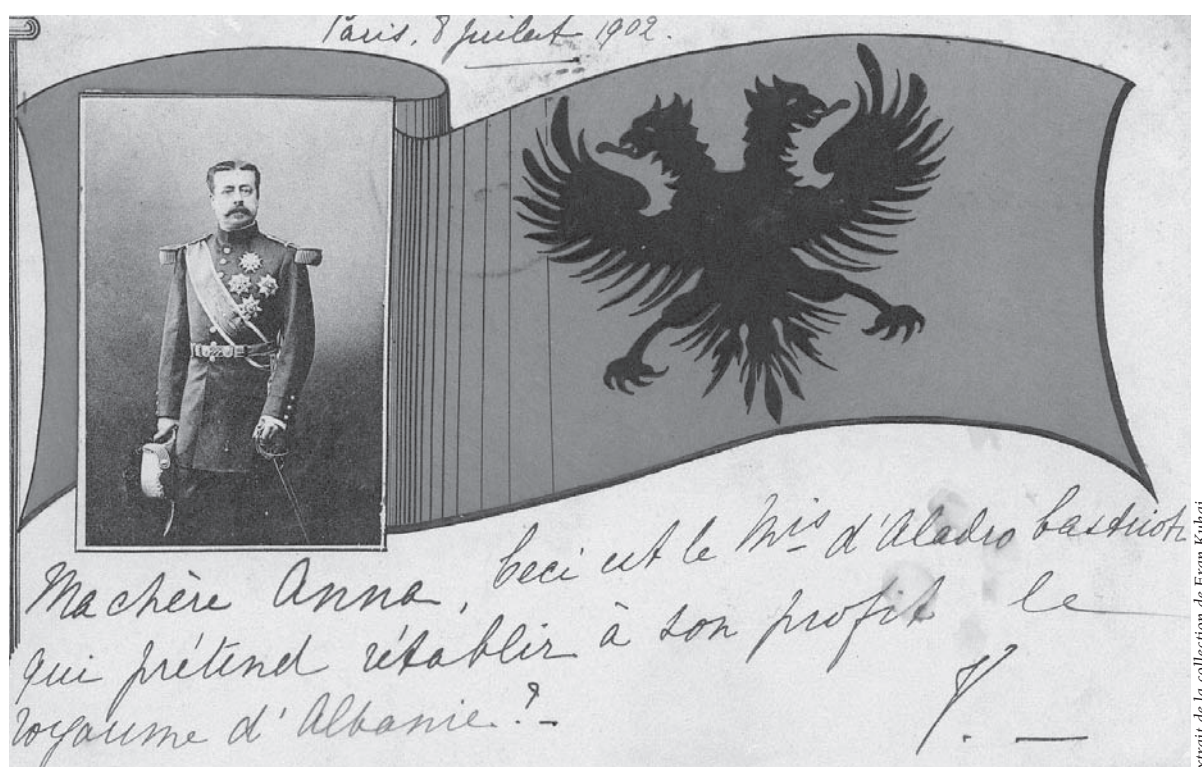 Paris, 8 Juillet 1902.
Ma chère Anna, Ceci est le Mis d'Aladro Castrioti
qui prétend rétablir à son profit le
royaume d'Albanie?-
V. —
Extrait de la collection de Eran Kuhai